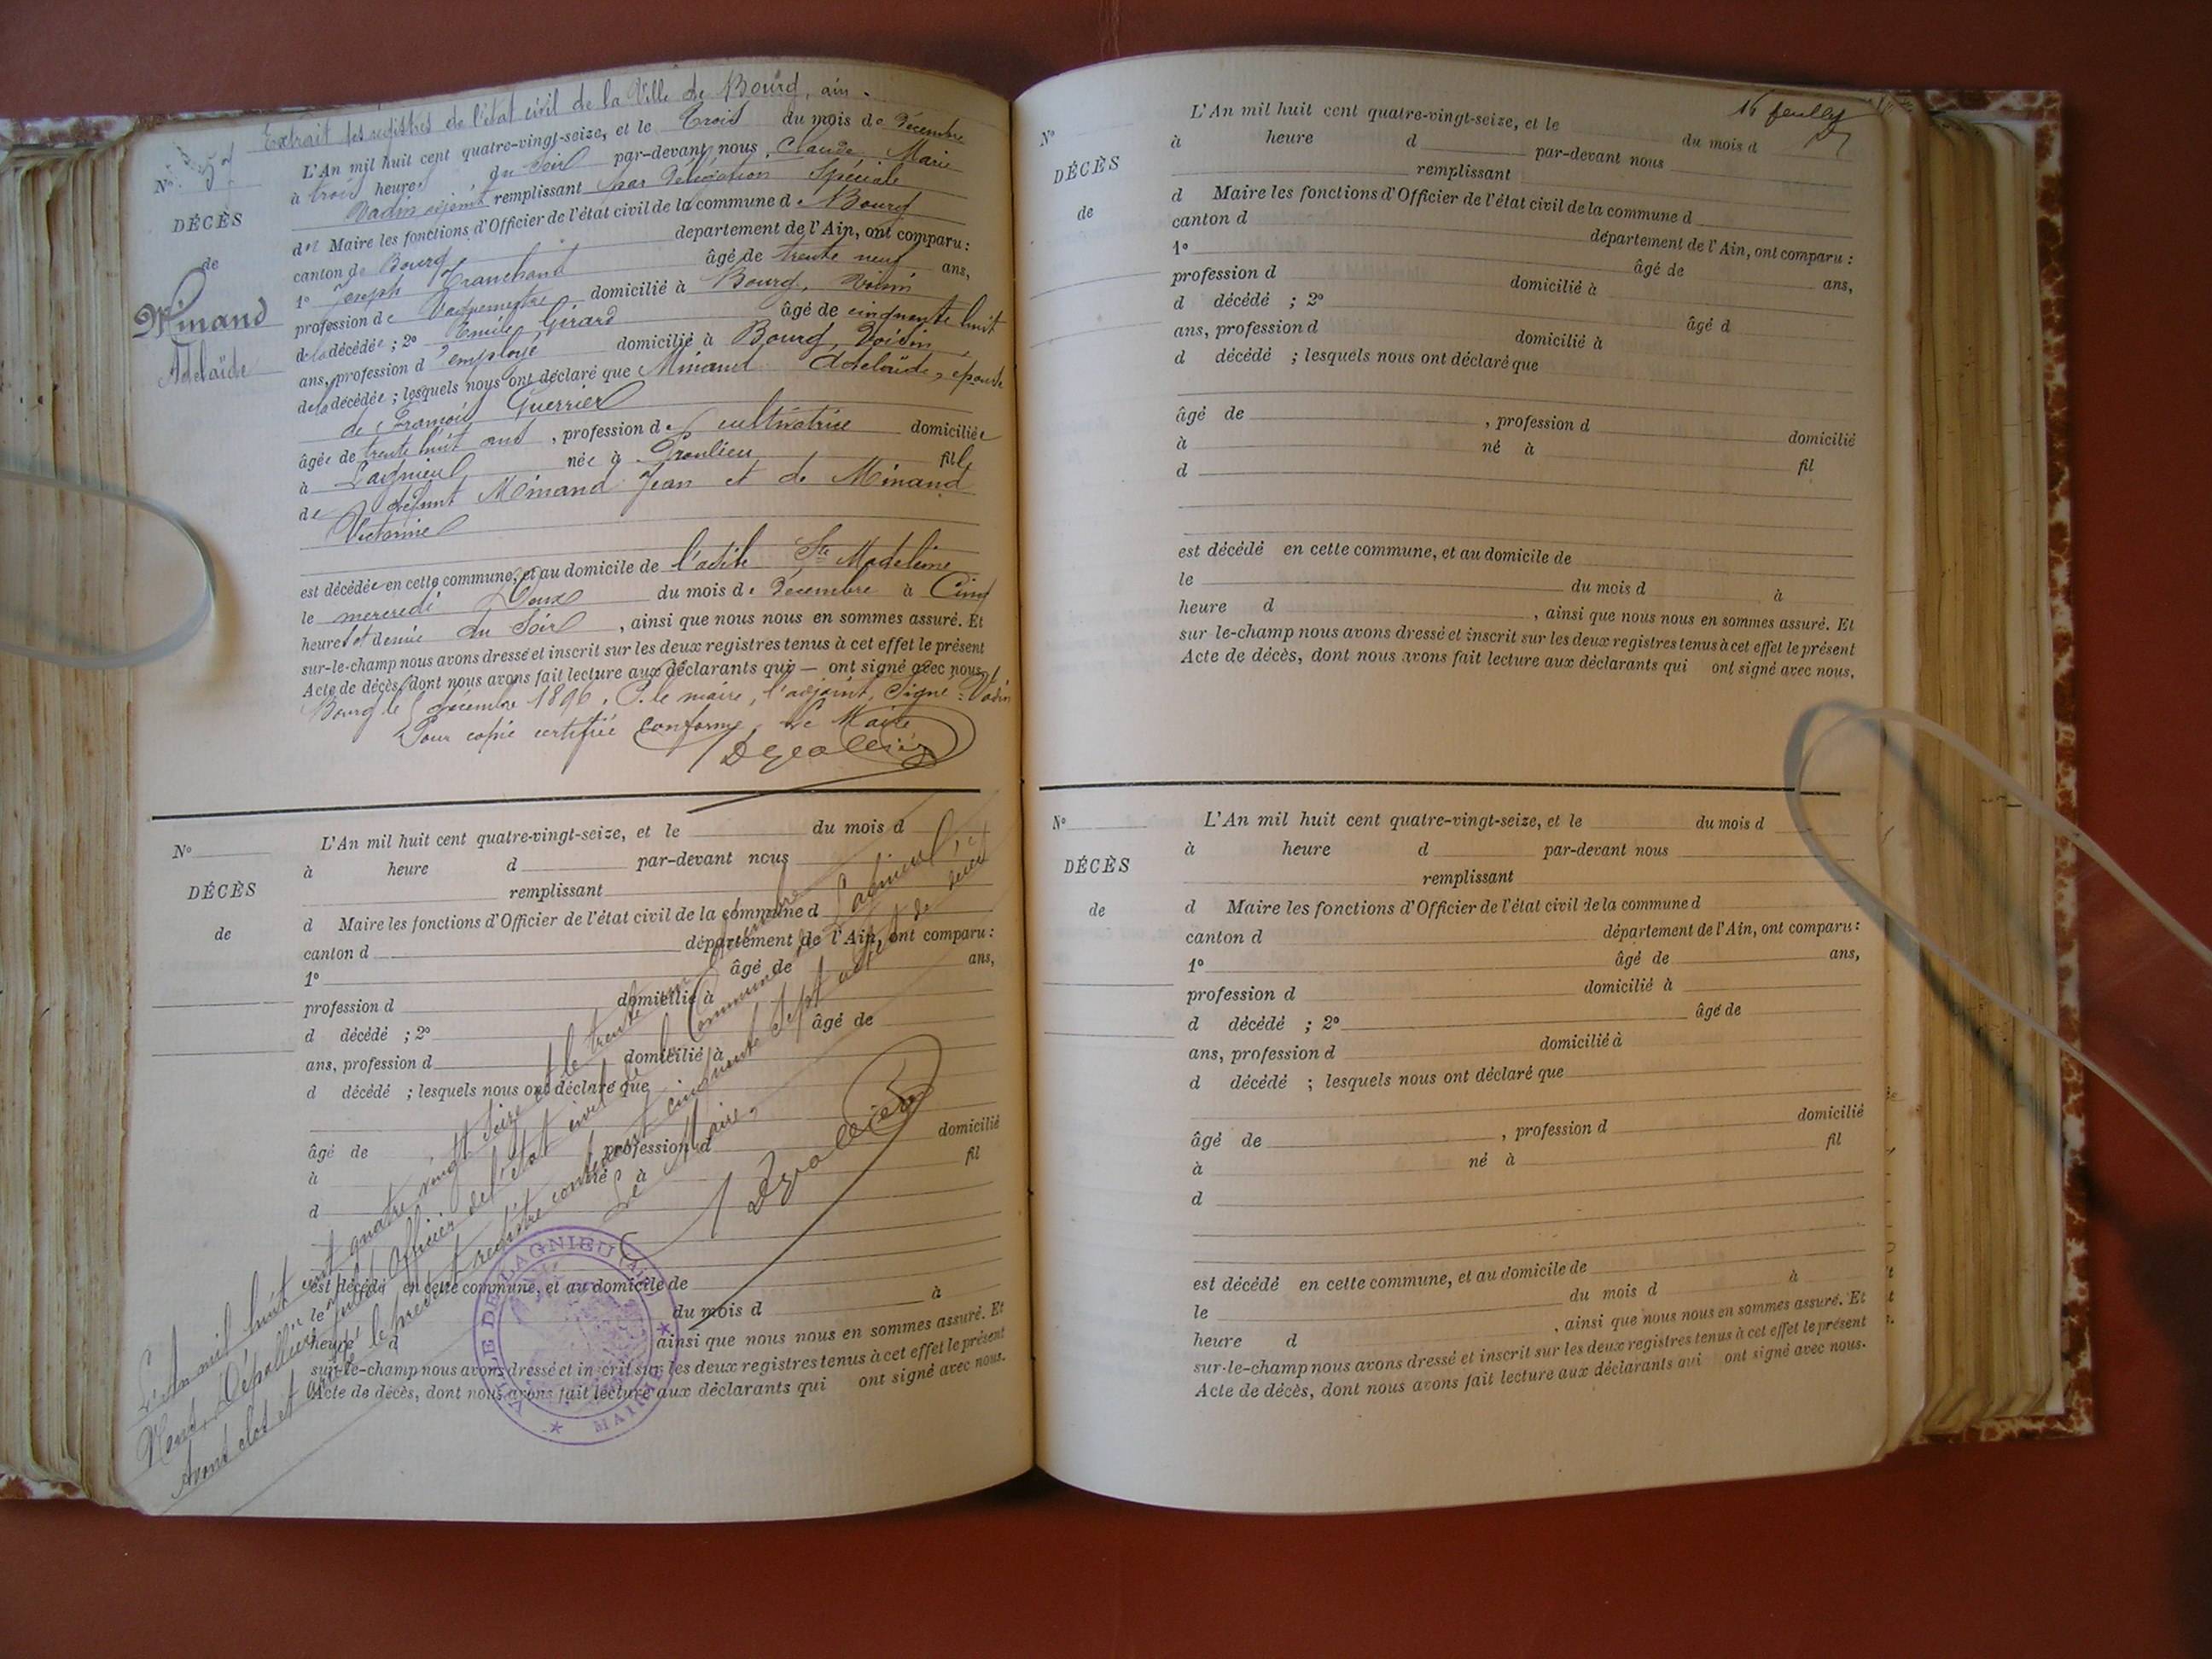 Extrait des registres de l'état civil de la Ville de Bourg, ain.
N° 57
DÉCÈS
de
Minand
Adelaïde
L'An mil huit cent quatre-vingt-seize, et le Trois du mois de Décembre
à trois heures du soir par-devant nous, Claude Marie
Vadin adjoint remplissant par Délégation Spéciale
du Maire les fonctions d'Officier de l'état civil de la commune de Bourg
canton de Bourg département de l'Ain, ont comparu :
1° Joseph Tranchant âgé de trente neuf ans,
profession de Vaguemestre domicilié à Bourg, voisin
de la décédée ; 2° Emile Girard âgé de cinquante huit
ans, profession d'employé domicilié à Bourg, Voisin,
de la décédée ; lesquels nous ont déclaré que Minand Adelaïde, épouse
de François Guerrier
âgée de trente huit ans, profession de cultivatrice domiciliée
à Lagnieu née à Proulieu fille
de défunt Minand Jean et de Minand
Victorine
est décédée en cette commune, et au domicile de l'asile Ste Madeleine
le mercredi Deux du mois de Décembre à Cinq
heures et demie du Soir, ainsi que nous nous en sommes assuré. Et
sur-le-champ nous avons dressé et inscrit sur les deux registres tenus à cet effet le présent
Acte de décès, dont nous avons fait lecture aux déclarants qui — ont signé avec nous.
Bourg le 5 décembre 1896. P. le maire, l'adjoint, Signé : Vadin
Pour copie certifiée conforme, Le Maire
N°
DÉCÈS
de
L'An mil huit cent quatre-vingt-seize, et le du mois d
à heure d par-devant nous
remplissant
d Maire les fonctions d'Officier de l'état civil de la commune d
canton d département de l'Ain, ont comparu :
1° âgé de ans,
profession d domicilié à
d décédé ; 2° âgé de
ans, profession d domicilié à
d décédé ; lesquels nous ont déclaré que
âgé de profession d domicilié
à né à fil
d
est décédé en cette commune, et au domicile de
le du mois d à
heure d ainsi que nous nous en sommes assuré. Et
sur-le-champ nous avons dressé et inscrit sur les deux registres tenus à cet effet le présent
Acte de décès, dont nous avons fait lecture aux déclarants qui ont signé avec nous.
L'an mil huit cent quatre vingt seize et le trente un décembre
Nous, Dépallier Officier de l'état civil de la Commune de Lagnieu,
Avons clos et arrêté le présent registre contenant cinquante sept actes de décès
Le Maire,
VILLE DE LAGNIEU (AIN)
* MAIRIE *
16 feuillet
N°
DÉCÈS
de
L'An mil huit cent quatre-vingt-seize, et le du mois d
à heure d par-devant nous
remplissant
d Maire les fonctions d'Officier de l'état civil de la commune d
canton d département de l'Ain, ont comparu :
1° âgé de ans,
profession d domicilié à
d décédé ; 2° âgé d
ans, profession d domicilié à
d décédé ; lesquels nous ont déclaré que
âgé de , profession d domicilié
à né à fil
d
est décédé en cette commune, et au domicile de
le du mois d à
heure d , ainsi que nous nous en sommes assuré. Et
sur-le-champ nous avons dressé et inscrit sur les deux registres tenus à cet effet le présent
Acte de décès, dont nous avons fait lecture aux déclarants qui ont signé avec nous.
N°
DÉCÈS
de
L'An mil huit cent quatre-vingt-seize, et le du mois d
à heure d par-devant nous
remplissant
d Maire les fonctions d'Officier de l'état civil de la commune d
canton d département de l'Ain, ont comparu :
1° âgé de ans,
profession d domicilié à
d décédé ; 2° âgé de
ans, profession d domicilié à
d décédé ; lesquels nous ont déclaré que
âgé de , profession d domicilié
à né à fil
d
est décédé en cette commune, et au domicile de
le du mois d à
heure d , ainsi que nous nous en sommes assuré. Et
sur-le-champ nous avons dressé et inscrit sur les deux registres tenus à cet effet le présent
Acte de décès, dont nous avons fait lecture aux déclarants qui ont signé avec nous.